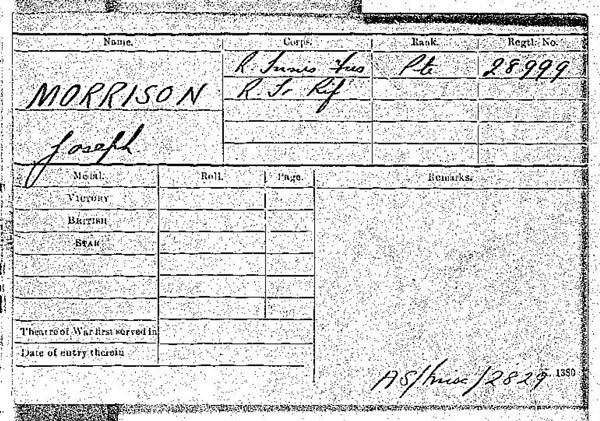 Name. Corps. Rank. Regtl. No.
R. Innis Fus Pte 28999
MORRISON R. Ir Rif
Joseph
Medal. Roll. Page. Remarks.
VICTORY
BRITISH
STAR
Theatre of War first served in
Date of entry therein
AS/misc/2829 1380